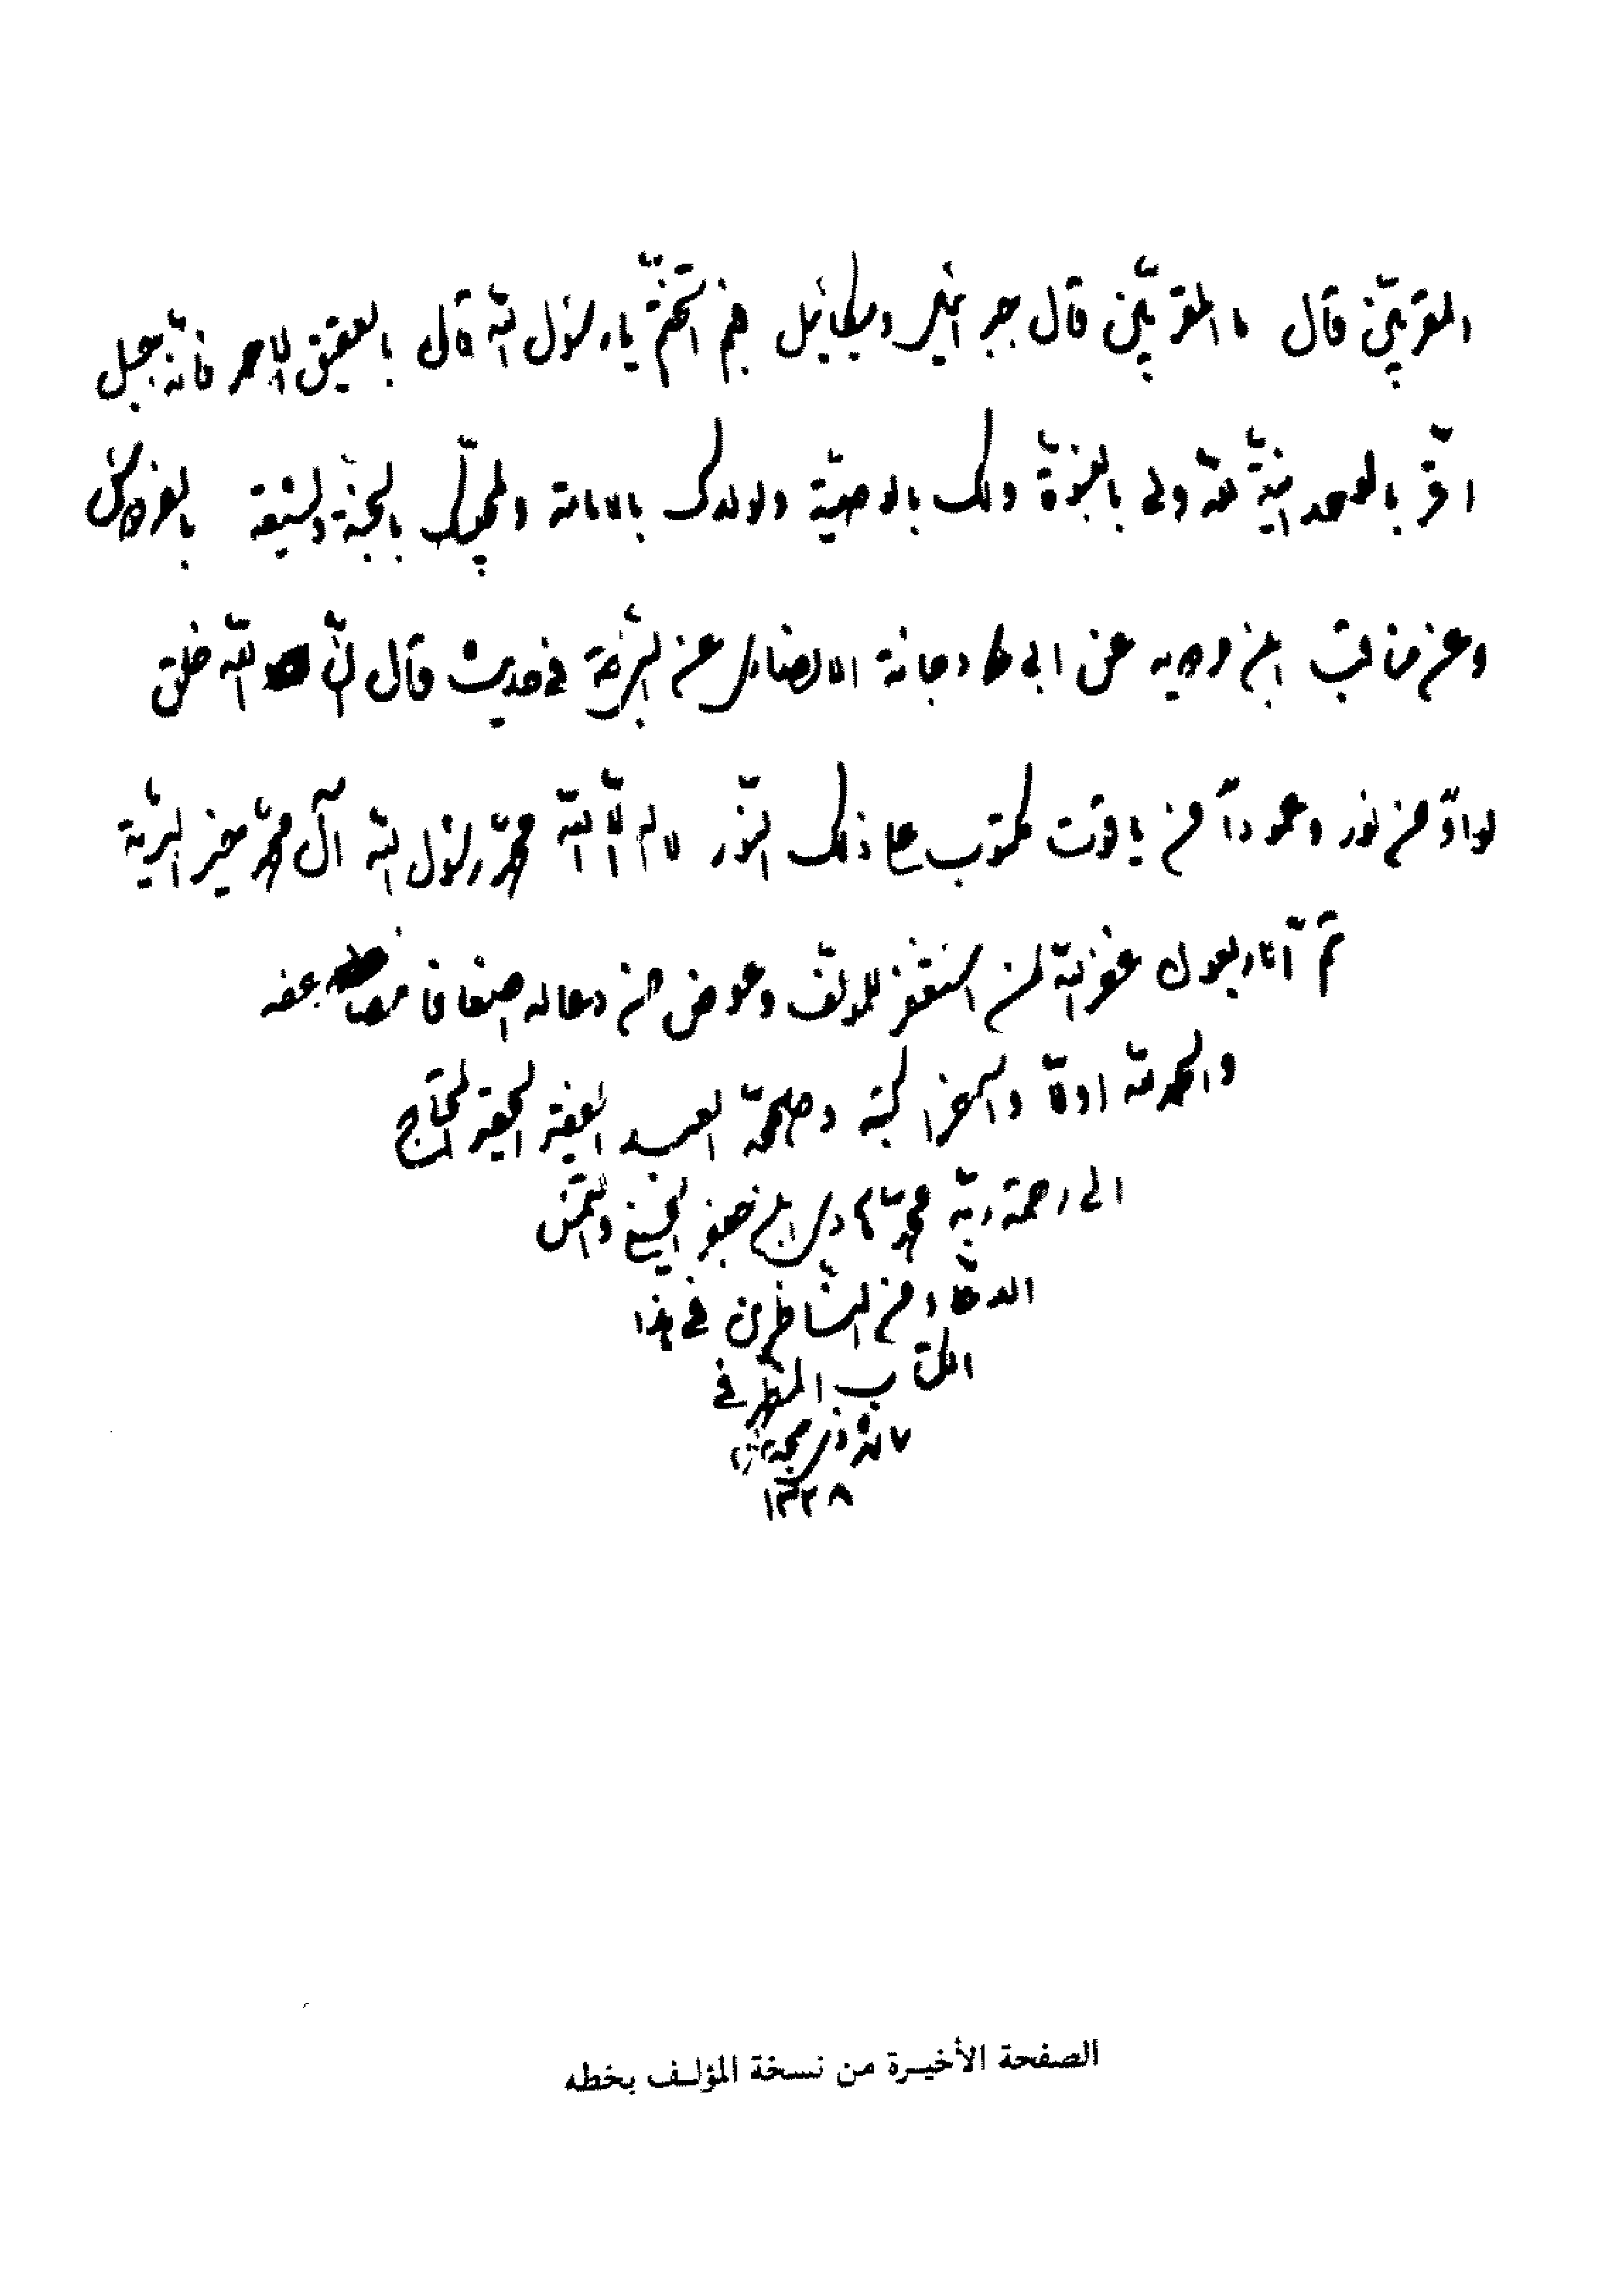 المقربين قال ما المقربين قال جبرائيل وميكائيل فبم اتختم يا رسول الله قال بالعقيق الاحمر فانه جبل
اقر بالوحدانية لله ولي بالنبوة ولك بالوصية ولولدك بالامامة ولمحبيك بالجنة ولشيعة
وعن مناقب ابن مردويه عن ابي دجانة الانصاري عن في حديث قال ان الله خلق
لواء من نور وعمودا من ياقوت مكتوب على ذلك النور لا اله الا الله محمد رسول الله آل محمد خير البرية
تم الاربعون غفر الله لمن استغفر للمؤلف وعوض من دعا له اضعافا مضاعفه
والحمد لله اولا وآخرا كتبه العبد الفقير الحقير المحتاج
الى رحمة ربه محمد بن جعفر الحسيني والتمس
الدعاء من الناظرين في هذا
الكتاب في
ذي حجة
١٣٣٨
الصفحة الأخيرة من نسخة المؤلف بخطه